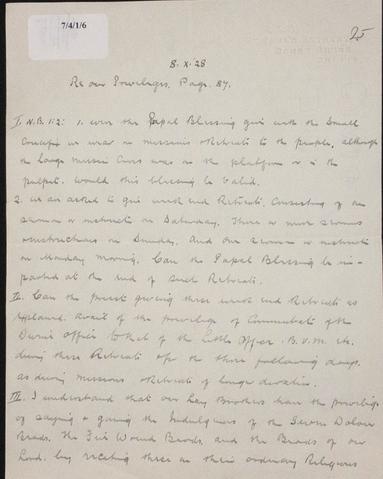 7/4/1/6
25
8. X. 28
Re our Privileges. Page. 87.
I N.B. 1:2: 1. were the Papal Blessing given with the Small
Crucifix as was on missions & Retreats to the people, although
the large mission Cross was on the platform or in the
pulpit. would this blessing be valid.
2. we are asked to give week end Retreats. Consisting of one
sermon or instruction on Saturday. Three or more sermons
& instructions on Sunday. And one sermon or instruction
on Monday morning. Can the Papal Blessing be im-
parted at the end of such Retreats.
II. Can the priest giving these week end Retreats as
explained. avail of the privilege of Commutation of the
Divine Office to that of the Little Office. B.V.M. etc.
during these Retreats & for the three following days.
as during missions & Retreats of longer duration.
III. I understand that our Lay Brothers have the privilege
of saying & gaining the Indulgences of the Seven Dolour
Beads. the Five Wound Beads, and the Beads of our
Lord. by reciting these as their ordinary Religious